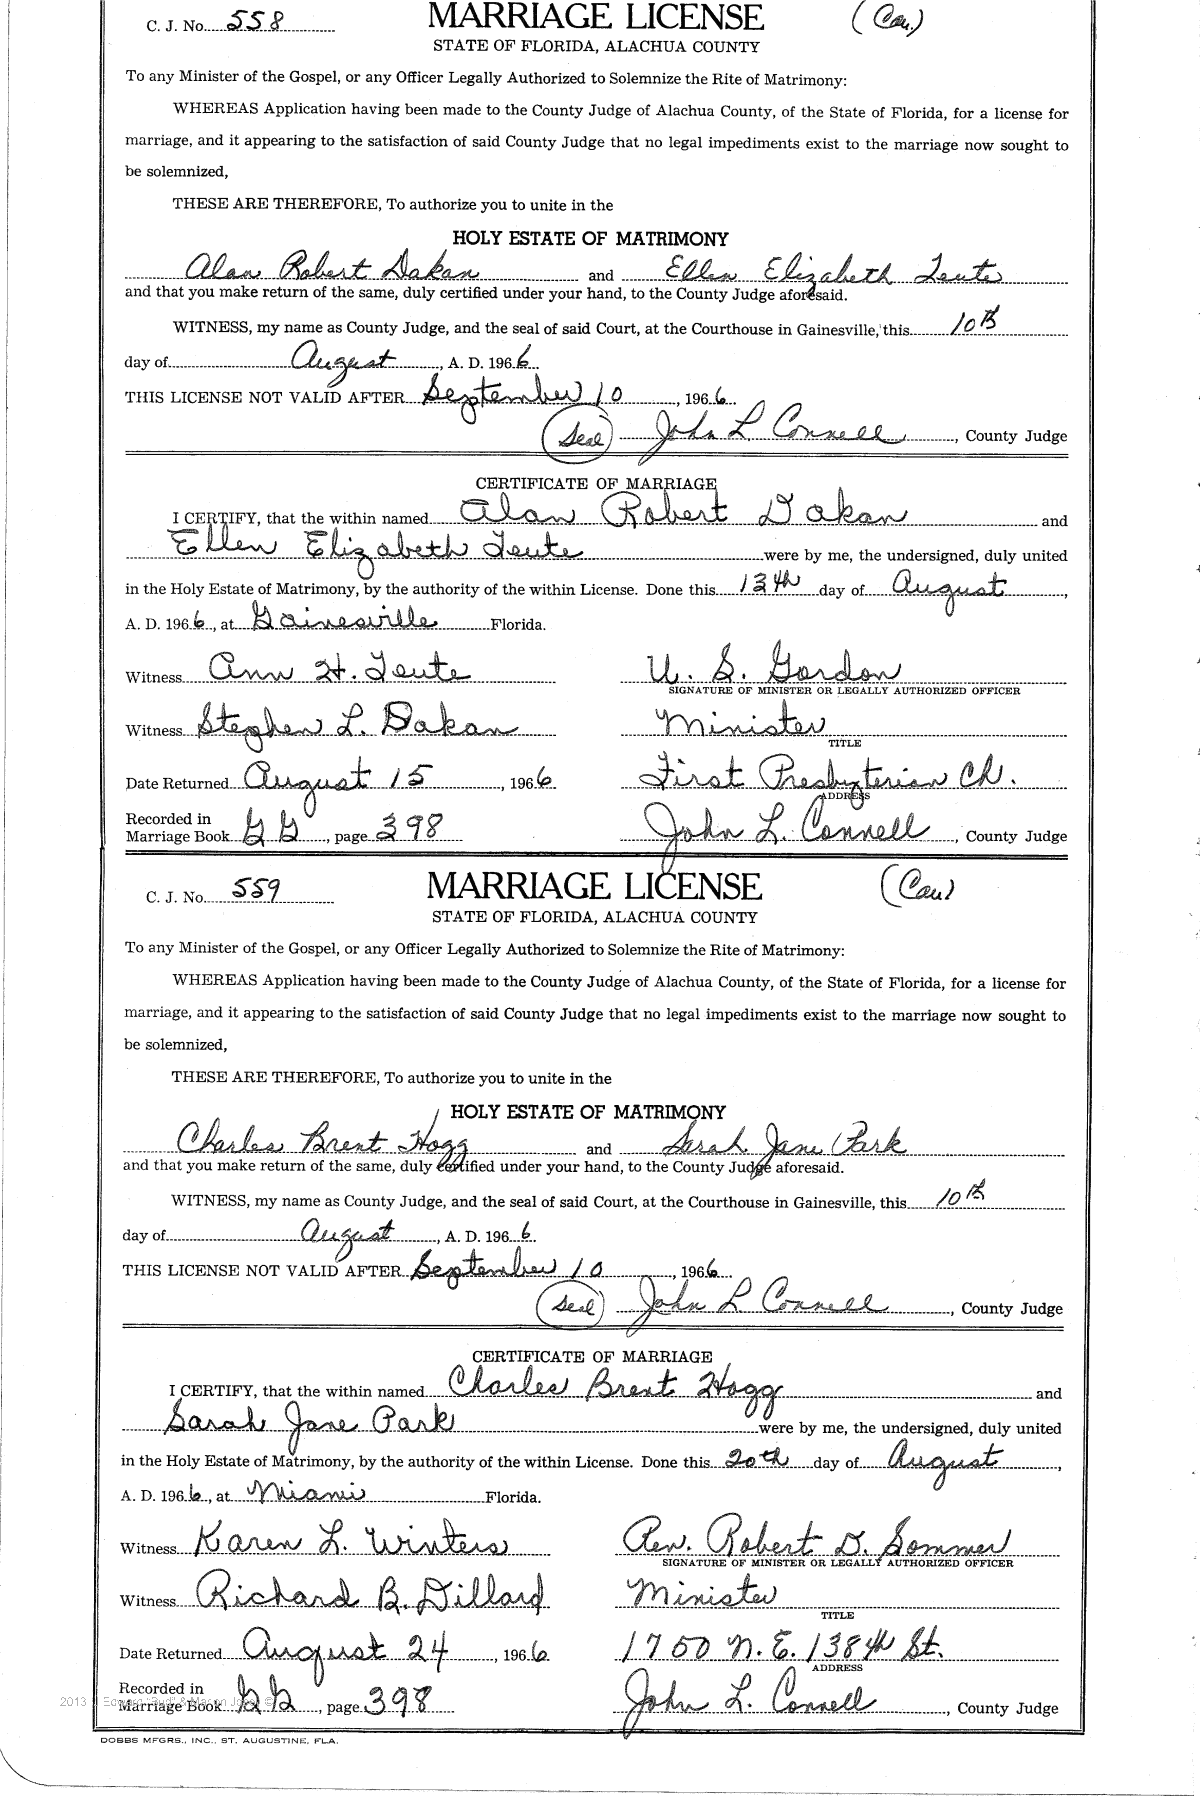 C. J. No. 558 MARRIAGE LICENSE (Cau.)
STATE OF FLORIDA, ALACHUA COUNTY
To any Minister of the Gospel, or any Officer Legally Authorized to Solemnize the Rite of Matrimony:
WHEREAS Application having been made to the County Judge of Alachua County, of the State of Florida, for a license for
marriage, and it appearing to the satisfaction of said County Judge that no legal impediments exist to the marriage now sought to
be solemnized,
THESE ARE THEREFORE, To authorize you to unite in the
HOLY ESTATE OF MATRIMONY
Alan Robert Dakan and Ellen Elizabeth Teute
and that you make return of the same, duly certified under your hand, to the County Judge aforesaid.
WITNESS, my name as County Judge, and the seal of said Court, at the Courthouse in Gainesville, this 10th
day of August, A. D. 1966.
THIS LICENSE NOT VALID AFTER September 10, 1966.
(Seal) John L Connell, County Judge
CERTIFICATE OF MARRIAGE
I CERTIFY, that the within named Alan Robert Dakan and
Ellen Elizabeth Teute were by me, the undersigned, duly united
in the Holy Estate of Matrimony, by the authority of the within License. Done this 13th day of August,
A. D. 1966, at Gainesville Florida.
Witness Ann H. Teute U. S. Gordon
SIGNATURE OF MINISTER OR LEGALLY AUTHORIZED OFFICER
Witness Stephen L. Dakan Minister
TITLE
Date Returned August 15, 1966 First Presbyterian Ch.
ADDRESS
Recorded in
Marriage Book GG, page 398 John L. Connell, County Judge
C. J. No. 559 MARRIAGE LICENSE (Cau)
STATE OF FLORIDA, ALACHUA COUNTY
To any Minister of the Gospel, or any Officer Legally Authorized to Solemnize the Rite of Matrimony:
WHEREAS Application having been made to the County Judge of Alachua County, of the State of Florida, for a license for
marriage, and it appearing to the satisfaction of said County Judge that no legal impediments exist to the marriage now sought to
be solemnized,
THESE ARE THEREFORE, To authorize you to unite in the
HOLY ESTATE OF MATRIMONY
Charles Brent Hogg and Sarah Jane Park
and that you make return of the same, duly certified under your hand, to the County Judge aforesaid.
WITNESS, my name as County Judge, and the seal of said Court, at the Courthouse in Gainesville, this 10th
day of August, A. D. 1966.
THIS LICENSE NOT VALID AFTER September 10, 1966.
(Seal) John L Connell, County Judge
CERTIFICATE OF MARRIAGE
I CERTIFY, that the within named Charles Brent Hogg and
Sarah Jane Park were by me, the undersigned, duly united
in the Holy Estate of Matrimony, by the authority of the within License. Done this 20th day of August,
A. D. 1966, at Miami Florida.
Witness Karen L. Winters Rev. Robert D. Sommer
SIGNATURE OF MINISTER OR LEGALLY AUTHORIZED OFFICER
Witness Richard B. Dillard Minister
TITLE
Date Returned August 24, 1966. 1750 N. E. 138th St.
ADDRESS
Recorded in
Marriage Book GG, page 398 John L. Connell, County Judge
2013
DOBBS MFGRS., INC., ST. AUGUSTINE, FLA.